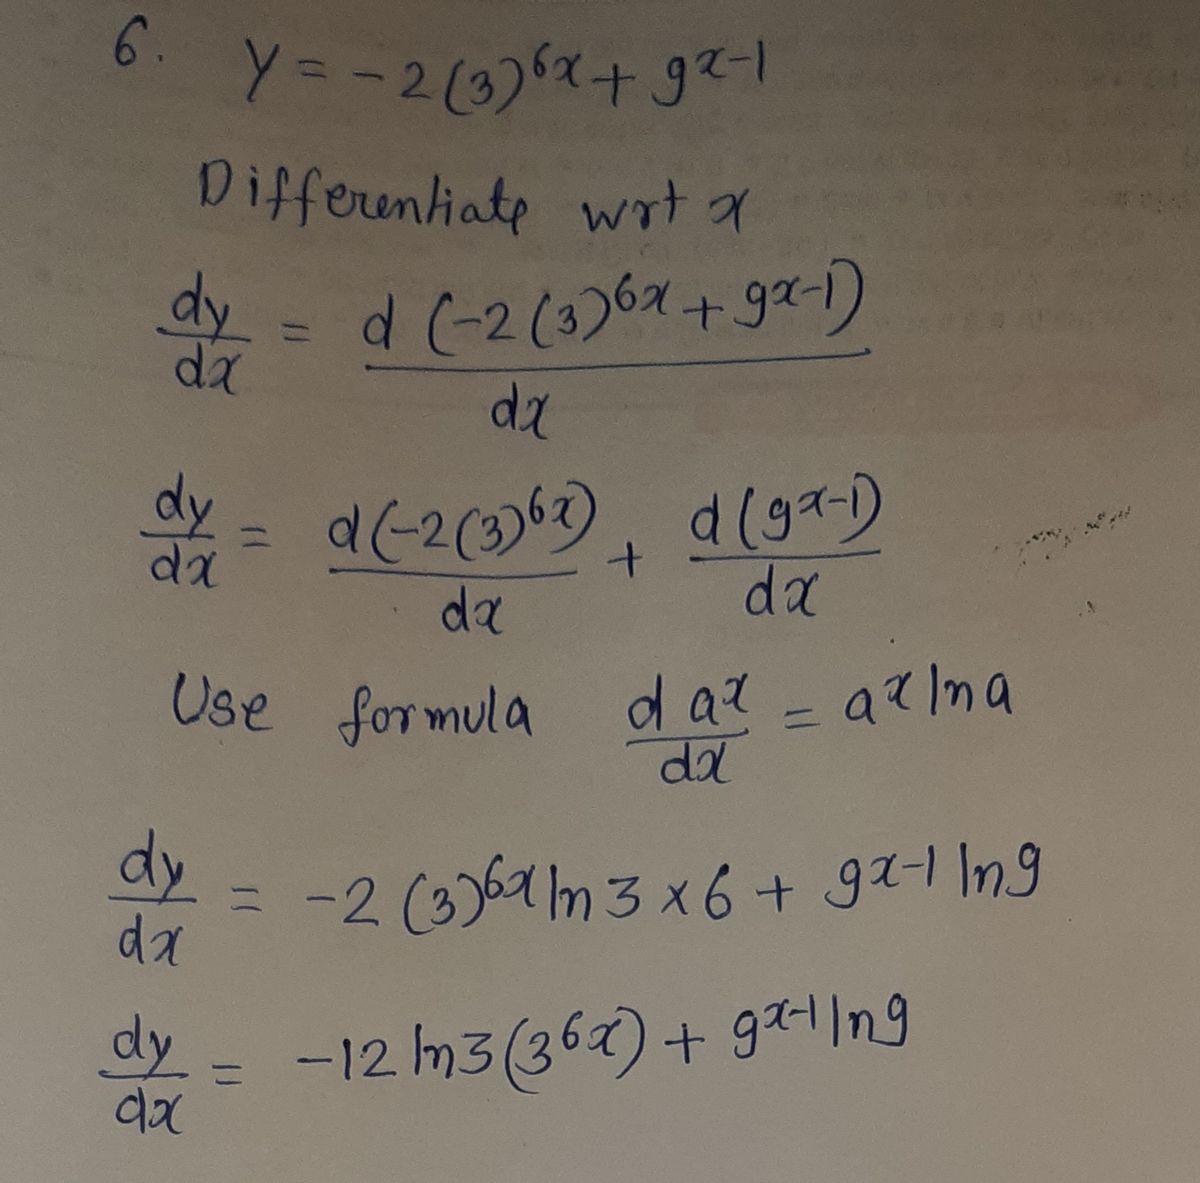 6. y = -2(3)^6x + 9^x-1
Differentiate wrt x
dy/dx = d(-2(3)^6x + 9^x-1)/dx
dy/dx = d(-2(3)^6x)/dx + d(9^x-1)/dx
Use formula d a^x/dx = a^x ln a
dy/dx = -2(3)^6x ln 3 × 6 + 9^x-1 ln 9
dy/dx = -12 ln 3 (3^6x) + 9^x-1 ln 9